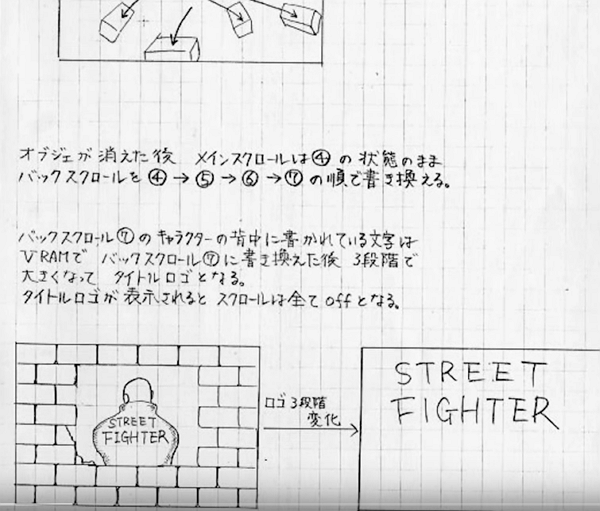 オブジェが消えた後 メインスクロールは④の状態のまま
バックスクロールを④→⑤→⑥→⑦の順で書き換える。
バックスクロール⑦のキャラクターの背中に書かれている文字は
VRAMで バックスクロール⑦に書き換えた後 3段階で
大きくなって タイトルロゴとなる。
タイトルロゴが表示されると スクロールは全てoffとなる。
STREET
FIGHTER
ロゴ3段階
変化
STREET
FIGHTER